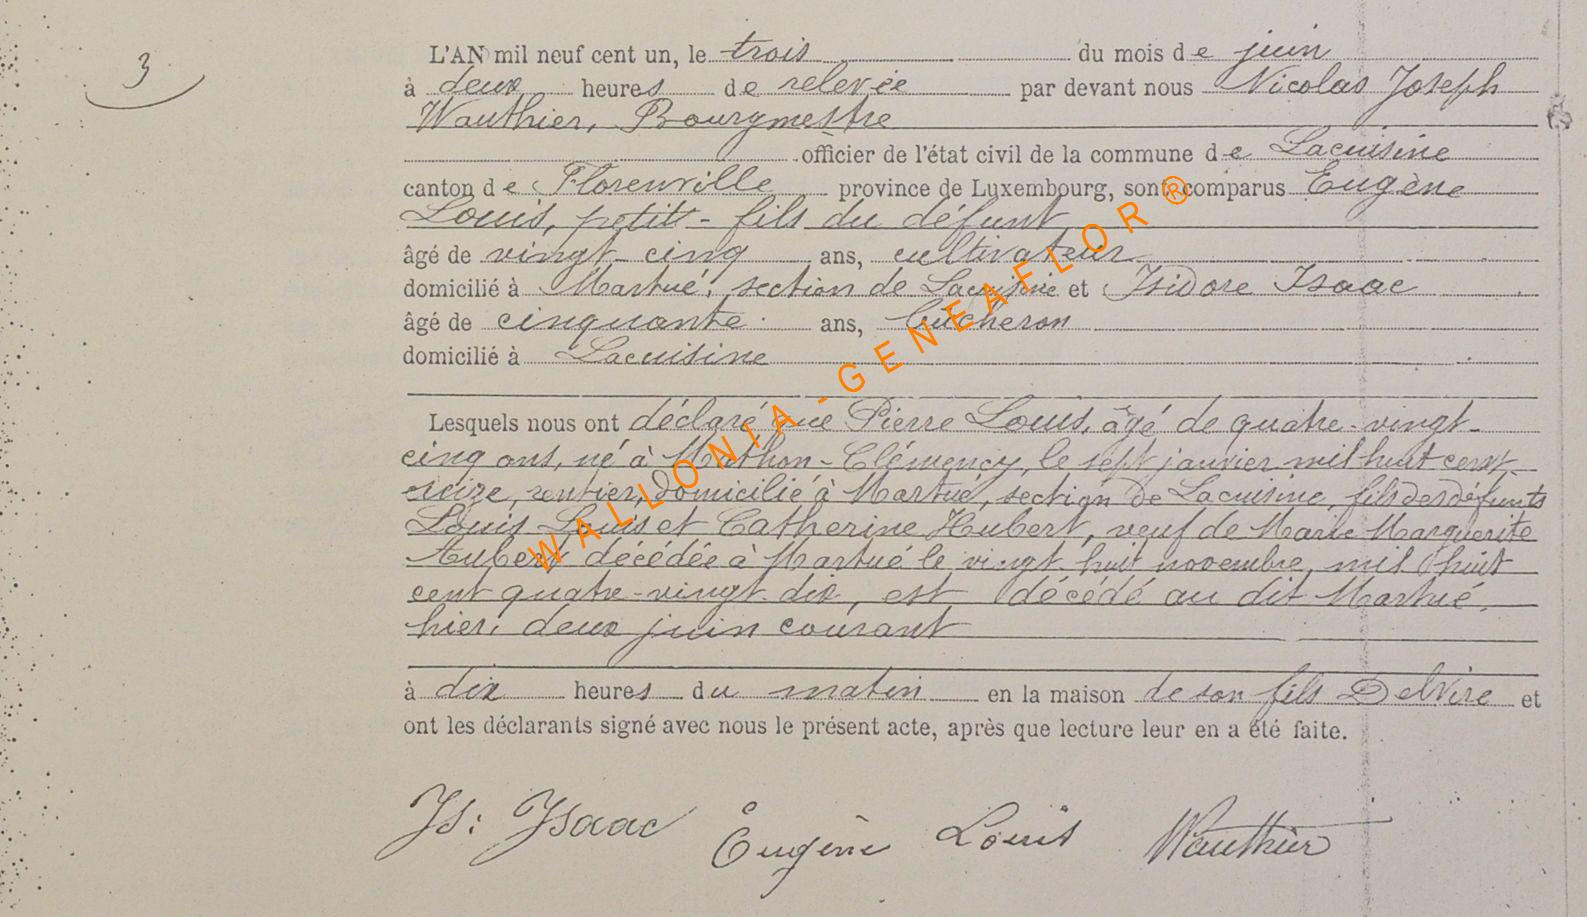 3
L'AN mil neuf cent un, le trois du mois de juin
à deux heures de relevée par devant nous Nicolas Joseph
Wauthier, Bourgmestre
officier de l'état civil de la commune de Lacuisine
canton de Florenville province de Luxembourg, sont comparus Eugène
Louis, petit-fils du défunt
âgé de vingt-cinq ans, cultivateur
domicilié à Martué, section de Lacuisine et Isidore Isaac
âgé de cinquante ans, bucheron
domicilié à Lacuisine
Lesquels nous ont déclaré que Pierre Louis, âgé de quatre-vingt-
cinq ans, né à Mathon-Clémency, le sept janvier mil huit cent
seize, rentier, domicilié à Martué, section de Lacuisine, fils des défunts
Louis Louis et Catherine Hubert, veuf de Marie Marguerite
décédée à Martué le vingt huit novembre mil huit
cent quatre-vingt-dix, est décédé au dit Martué,
hier, deux juin courant
à dix heures du matin en la maison de son fils Delvire et
ont les déclarants signé avec nous le présent acte, après que lecture leur en a été faite.
Is: Isaac Eugène Louis Wauthier
WALLONIA-GENEAFLOR ®